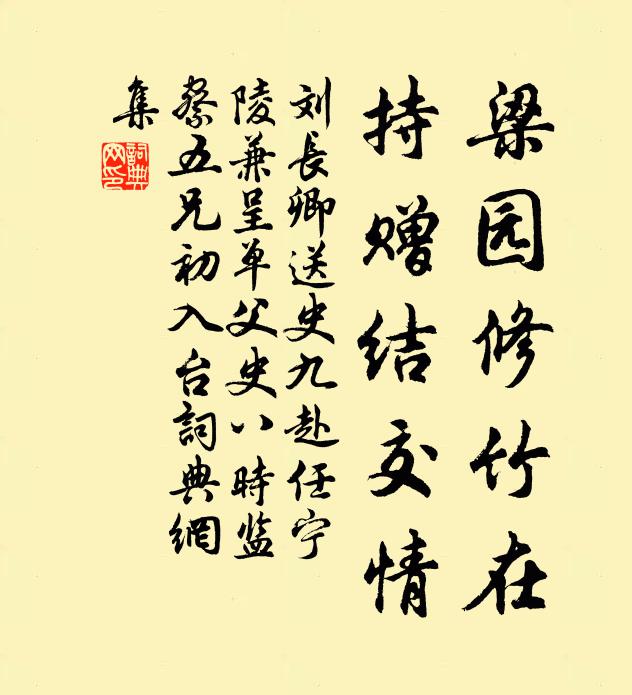 梁园修竹在
持赠结交情
刘長卿送史九赴任宁
陵兼呈单父史八時监
察五兄初入台詞典網
集
詞典
网印